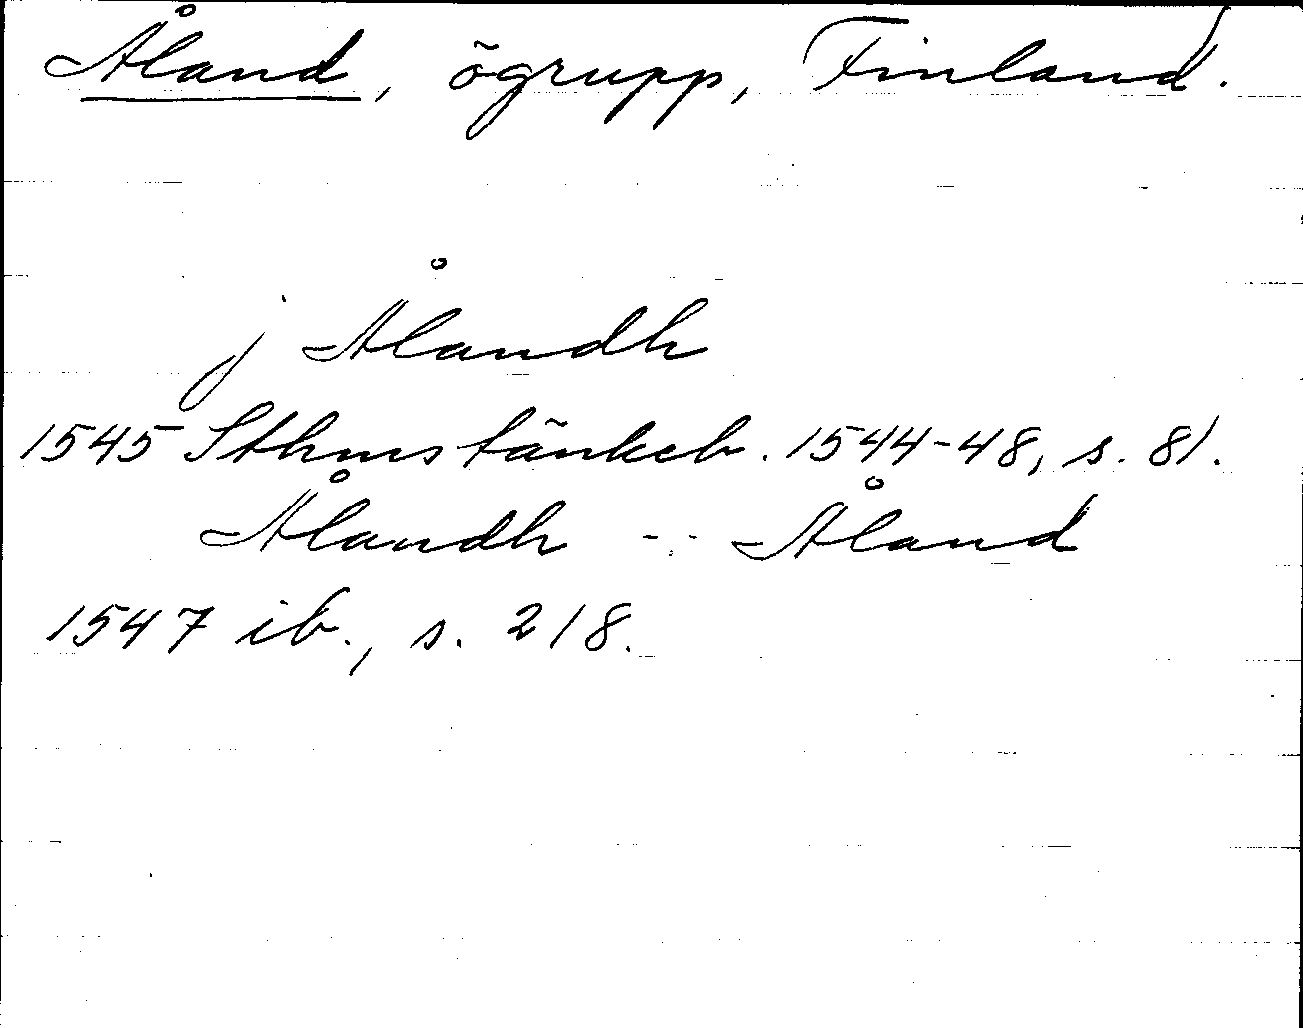 Åland, ögrupp, Finland.
j Ålandh
1545 Sthms tänkeb. 1544-48, s. 81.
Ålandh - - Åland
1547 ib., s. 218.